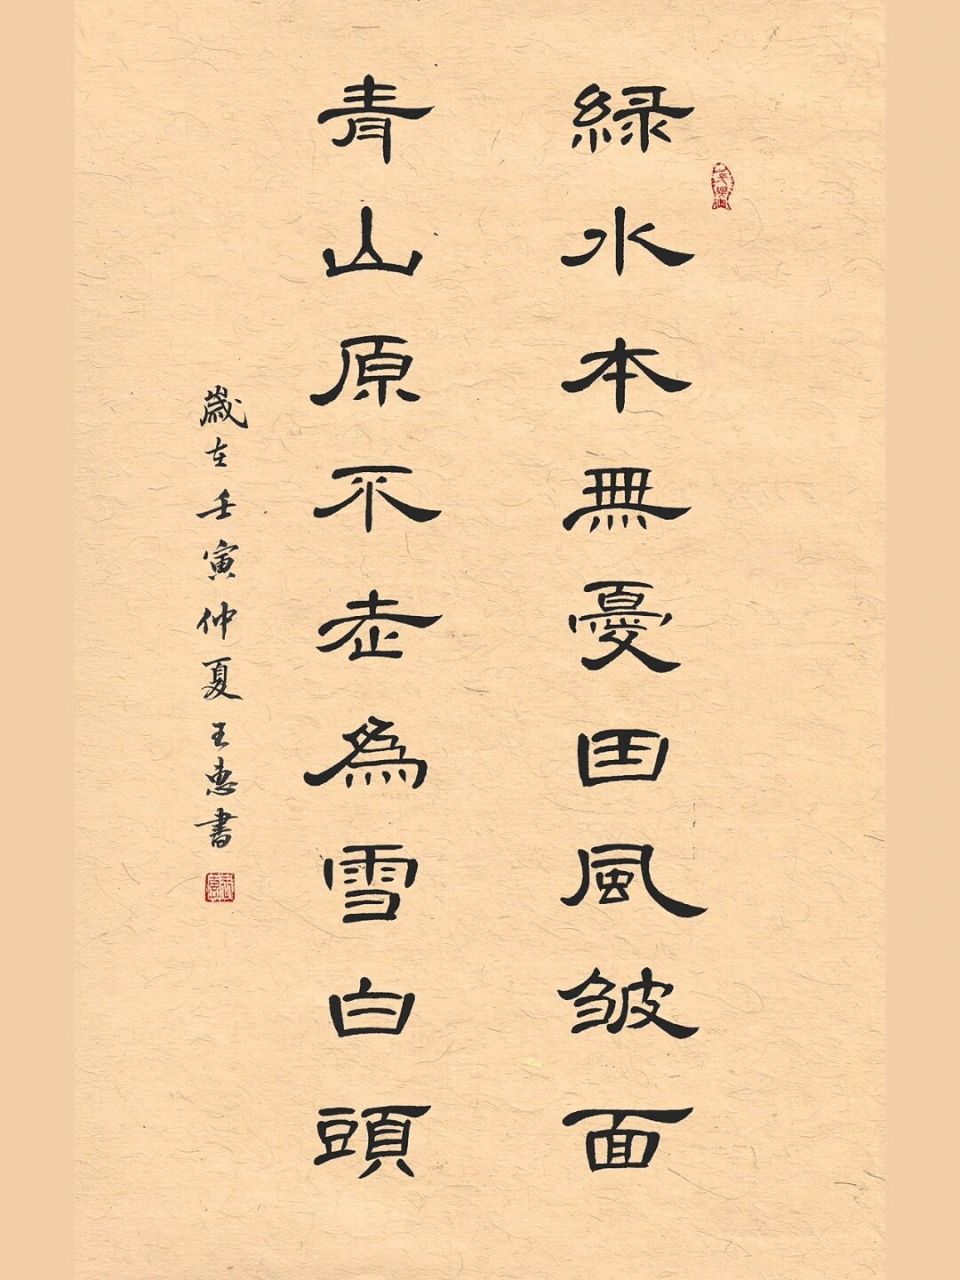 緑水本無憂因風皺面
青山原不老為雪白頭
歲在壬寅仲夏王惠書